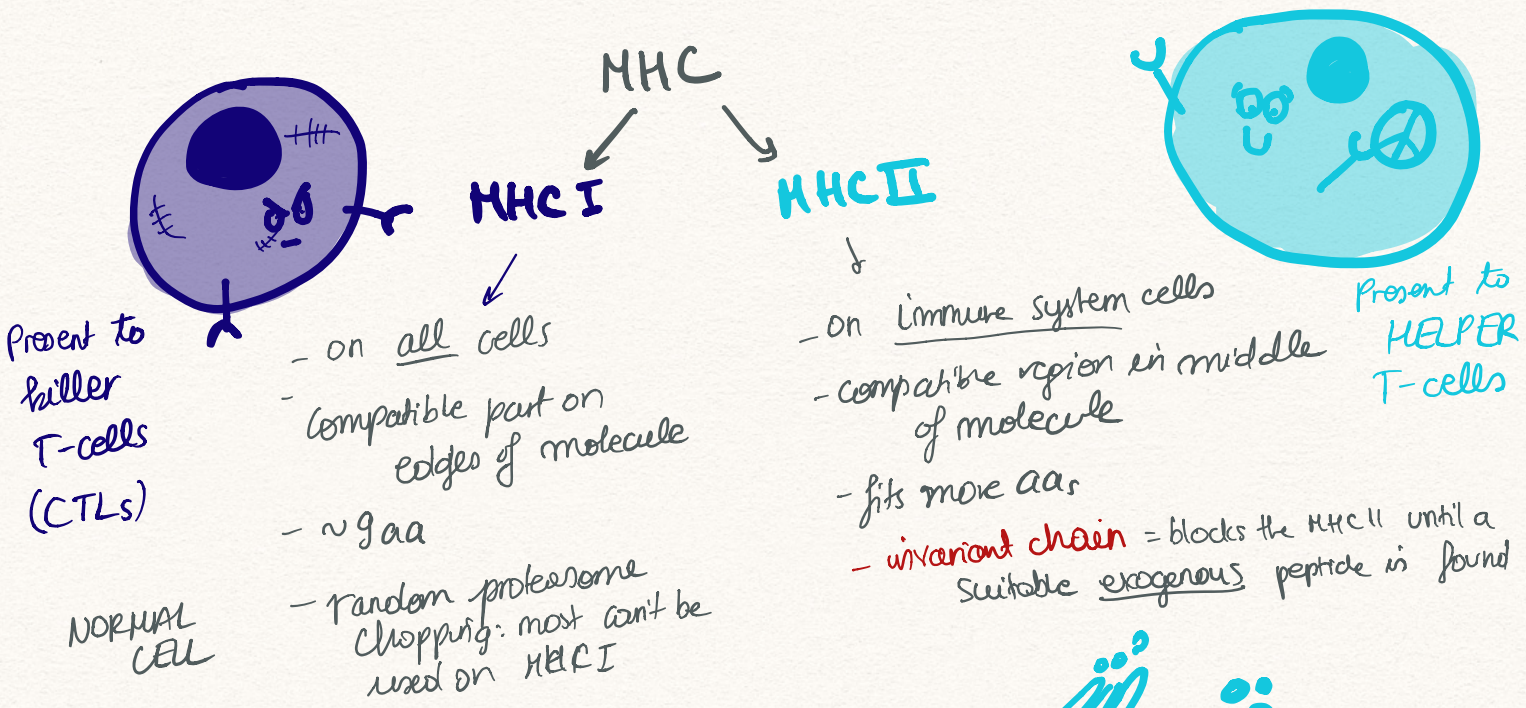 MHC
MHC I
MHC II
Present to
killer
T-cells
(CTLs)
- on all cells
- compatible part on
edges of molecule
- ~9aa
- random proteasome
chopping: most can't be
used on MHC I
NORMAL
CELL
- on immune system cells
- compatible region in middle
of molecule
- fits more aas
- invariant chain = blocks the MHC II until a
suitable exogenous peptide is found
Present to
HELPER
T-cells